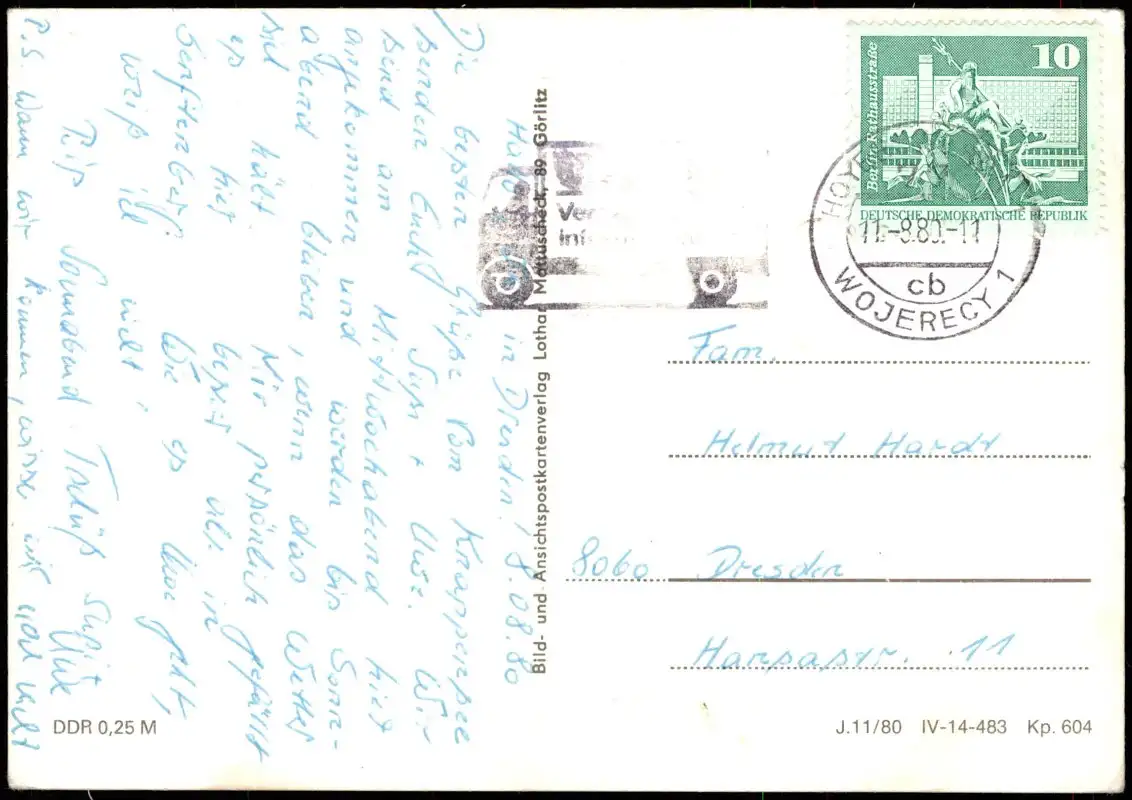 Hallo in Dresden! 8.08.80
Die besten Grüße vom Knappensee
senden Euch Susi + Uwe. Wir
sind am Mittwochabend hier
angekommen und werden bis Sonn-
abend bleiben, wenn das Wetter
sich hält. Mir persönlich gefällt
es hier besser als in
Senftenberg. Wie es Uwe geht,
weiß ich nicht.
Bis Sonnabend. Tschüß Susi
Uwe
P.S. Wann wir kommen, wissen wir noch nicht
Bild- und Ansichtspostkartenverlag Lothar Mattuscheck, 89 Görlitz
Berlin, Rathausstraße
10
DEUTSCHE DEMOKRATISCHE REPUBLIK
11.-8.80.-11
cb
WOJERECY 1
Fam.
Helmut Hardt
8060 Dresden
Hansastr. 11
DDR 0,25 M
J.11/80 IV-14-483 Kp. 604